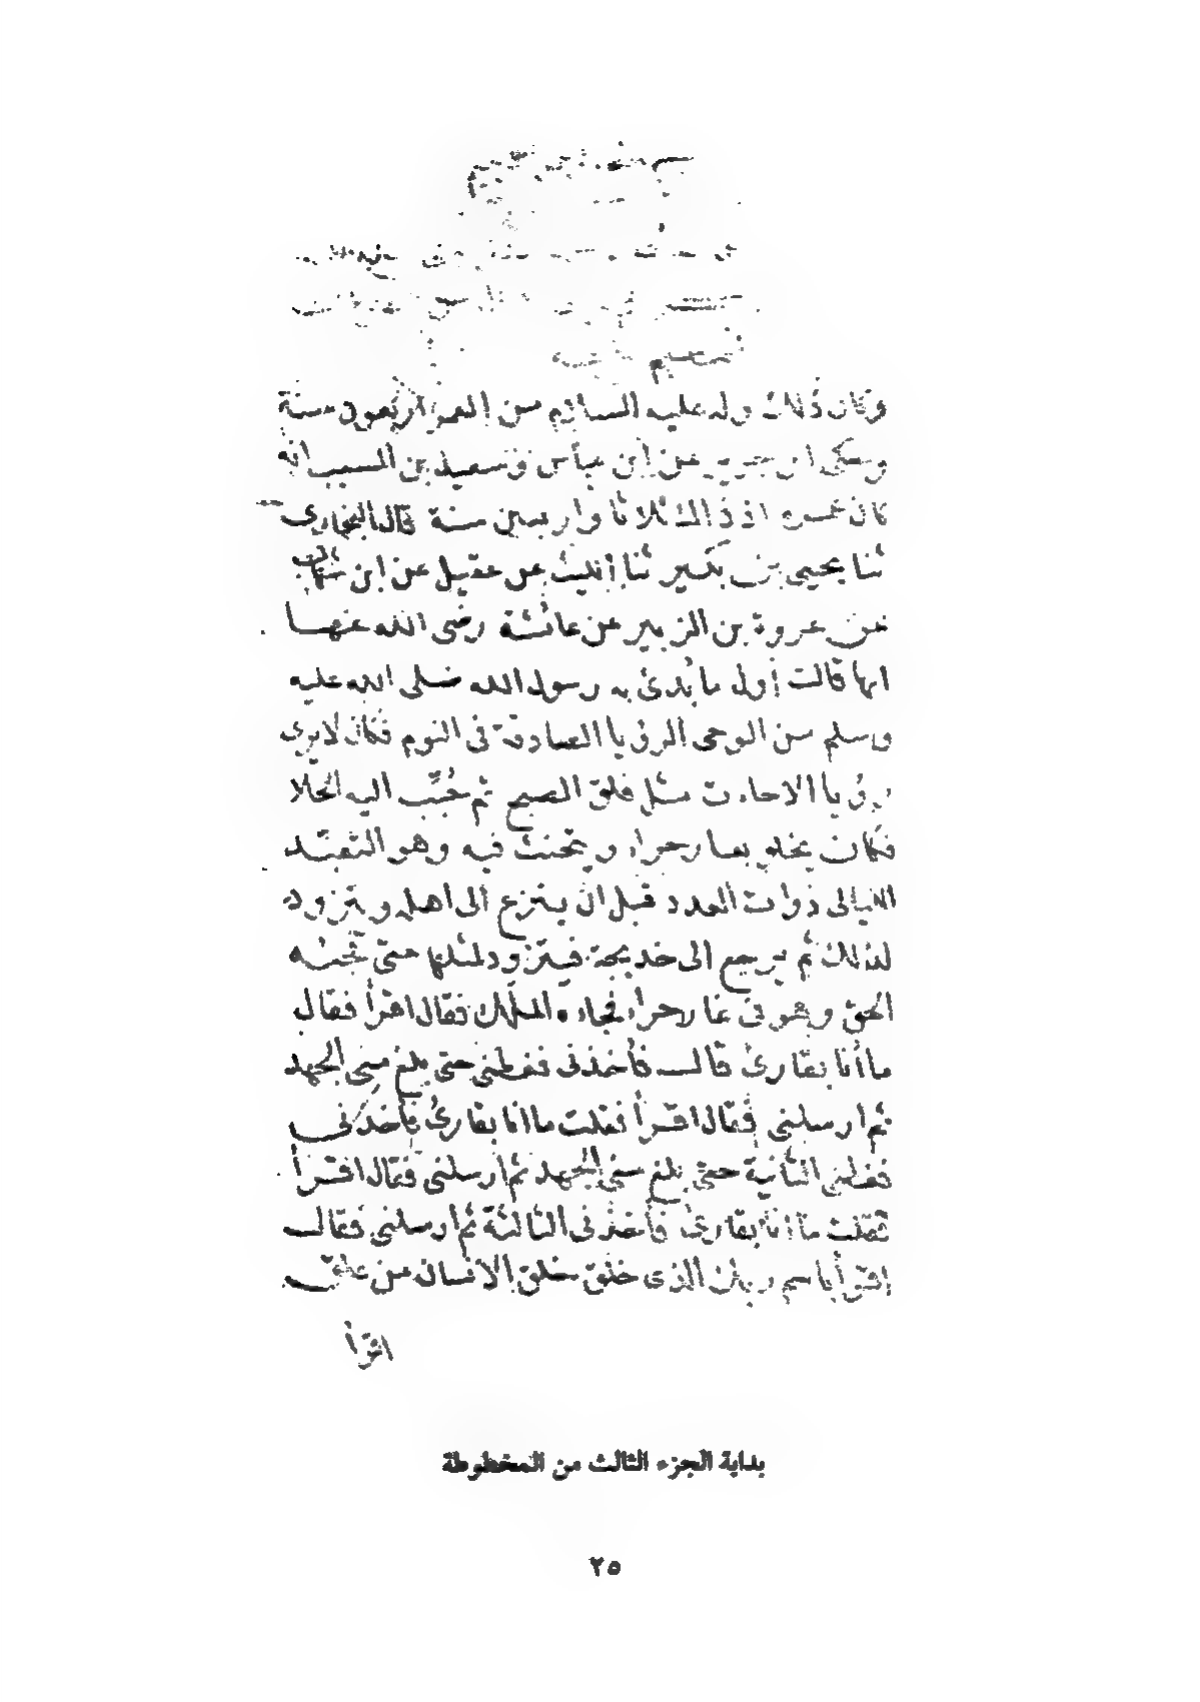 وكان ذلك وله عليه السلام من العمر أربعون سنة
وحكى ابن جرير عن ابن عباس وسعيد بن المسيب انه
كان عمره اذ ذاك ثلاثا واربعين سنة قال البخاري
ثنا يحيى بن بكير ثنا الليث عن عقيل عن ابن شهاب
عن عروة بن الزبير عن عائشة رضى الله عنها
انها قالت أول ما بُدئ به رسول الله صلى الله عليه
وسلم من الوحى الرؤيا الصادقة فى النوم فكان لا يرى
رؤيا الا جاءت مثل فلق الصبح ثم حُبِّب اليه الخلا
فكان يخلو بغار حراء ويتحنث فيه وهو التعبّد
الليالى ذوات العدد قبل ان ينزع الى اهله ويتزود
لذلك ثم يرجع الى خديجة فيتزود لمثلها حتى تجئه
الحق وهو فى غار حراء فجاءه الملك فقال اقرأ فقال
ما أنا بقارئ قال فأخذنى فغطنى حتى بلغ منى الجهد
ثم ارسلنى فقال اقرأ فقلت ما انا بقارئ فأخذنى
فغطنى الثانية حتى بلغ منى الجهد ثم ارسلنى فقال اقرأ
فقلت ما انا بقارئ فأخذنى الثالثة ثم ارسلنى فقال
اقرأ باسم ربك الذى خلق خلق الانسان من علق
اقرأ
بداية الجزء الثالث من المخطوطة
٢٥